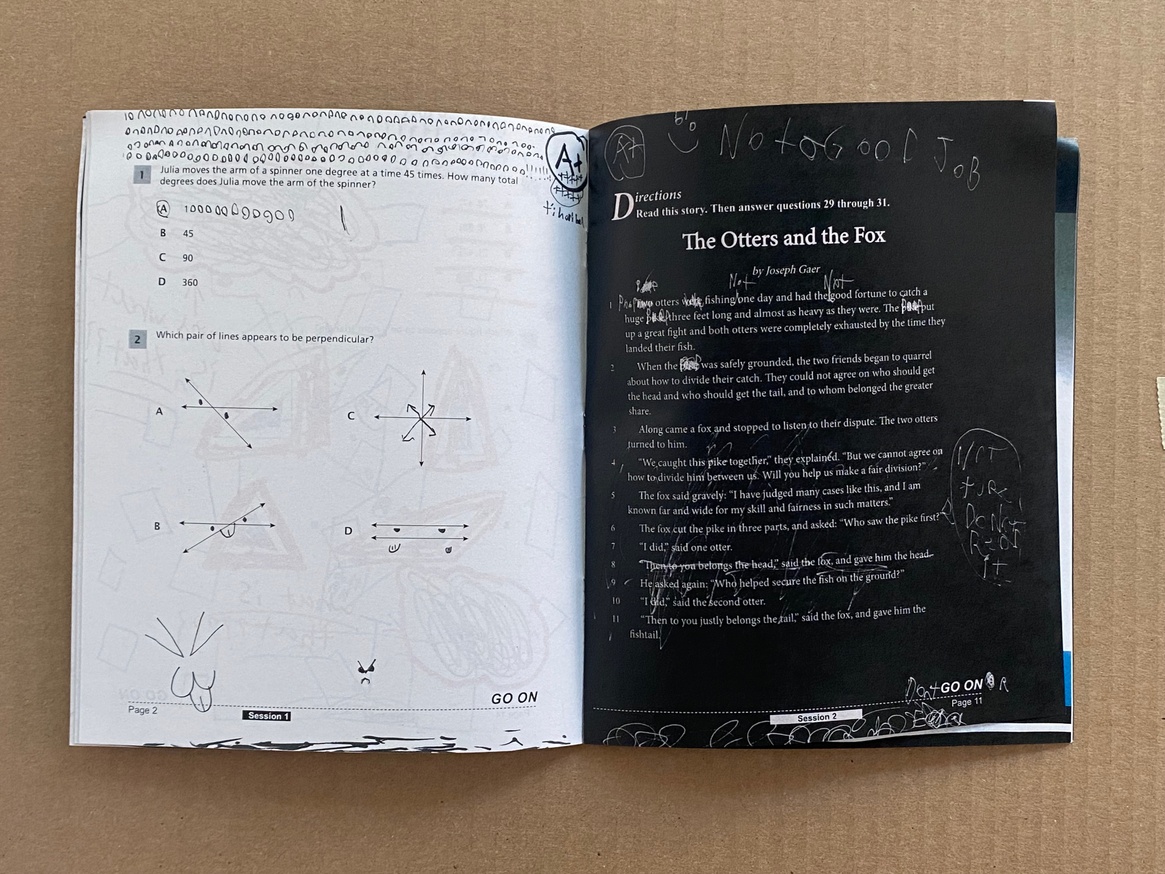 A+
1 Julia moves the arm of a spinner one degree at a time 45 times. How many total
degrees does Julia move the arm of the spinner?
A
B 45
C 90
D 360
2 Which pair of lines appears to be perpendicular?
A
C
B
D
GO ON
Page 2
Session 1
A+
Not a Good JoB
Directions
Read this story. Then answer questions 29 through 31.
The Otters and the Fox
by Joseph Gaer
Not Not
1 otters fishing one day and had the good fortune to catch a
huge three feet long and almost as heavy as they were. The put
up a great fight and both otters were completely exhausted by the time they
landed their fish.
2 When the was safely grounded, the two friends began to quarrel
about how to divide their catch. They could not agree on who should get
the head and who should get the tail, and to whom belonged the greater
share.
3 Along came a fox and stopped to listen to their dispute. The two otters
turned to him.
4 "We caught this pike together," they explained. "But we cannot agree on
how to divide him between us. Will you help us make a fair division?"
5 The fox said gravely: "I have judged many cases like this, and I am
known far and wide for my skill and fairness in such matters."
6 The fox cut the pike in three parts, and asked: "Who saw the pike first?"
7 "I did," said one otter.
8 "Then to you belongs the head," said the fox, and gave him the head.
9 He asked again: "Who helped secure the fish on the ground?"
10 "I did," said the second otter.
11 "Then to you justly belongs the tail," said the fox, and gave him the
fishtail.
It
Dont GO ON
Page 11
Session 2